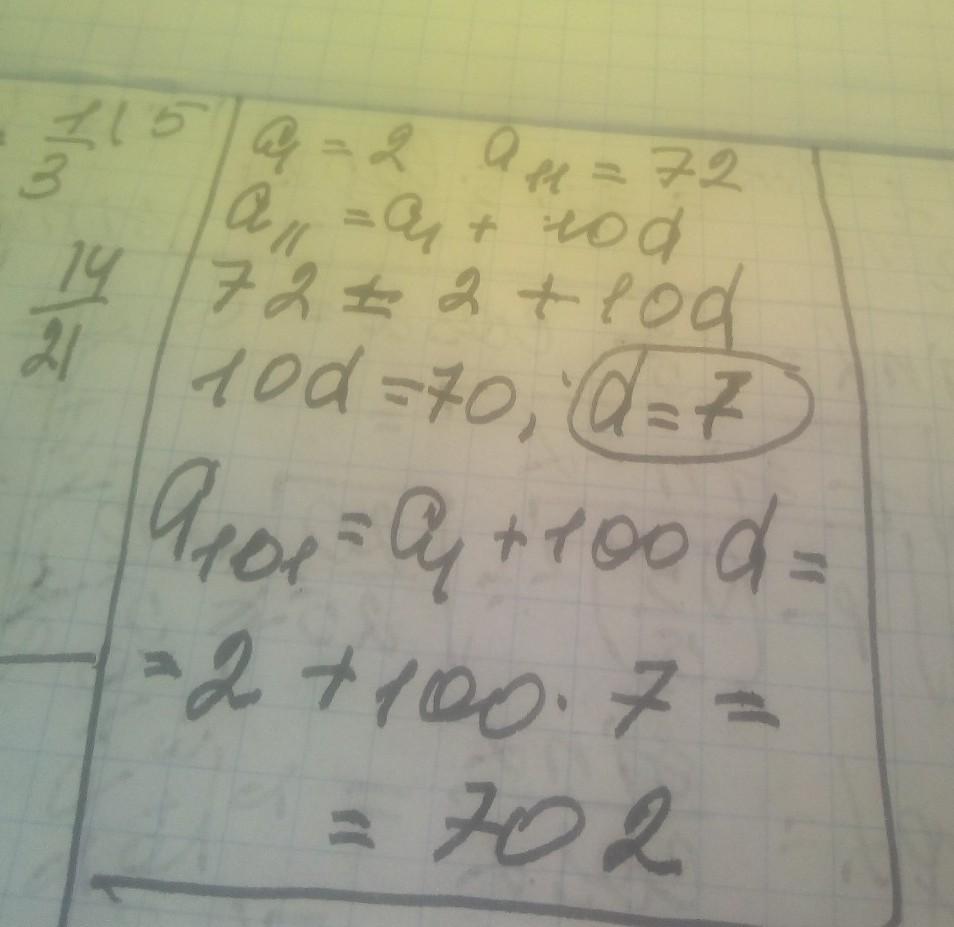 1/3 | 5
14/21
a₁ = 2 a₁₁ = 72
a₁₁ = a₁ + 10d
72 = 2 + 10d
10d = 70, d = 7
a₁₀₁ = a₁ + 100 d =
= 2 + 100 · 7 =
= 702